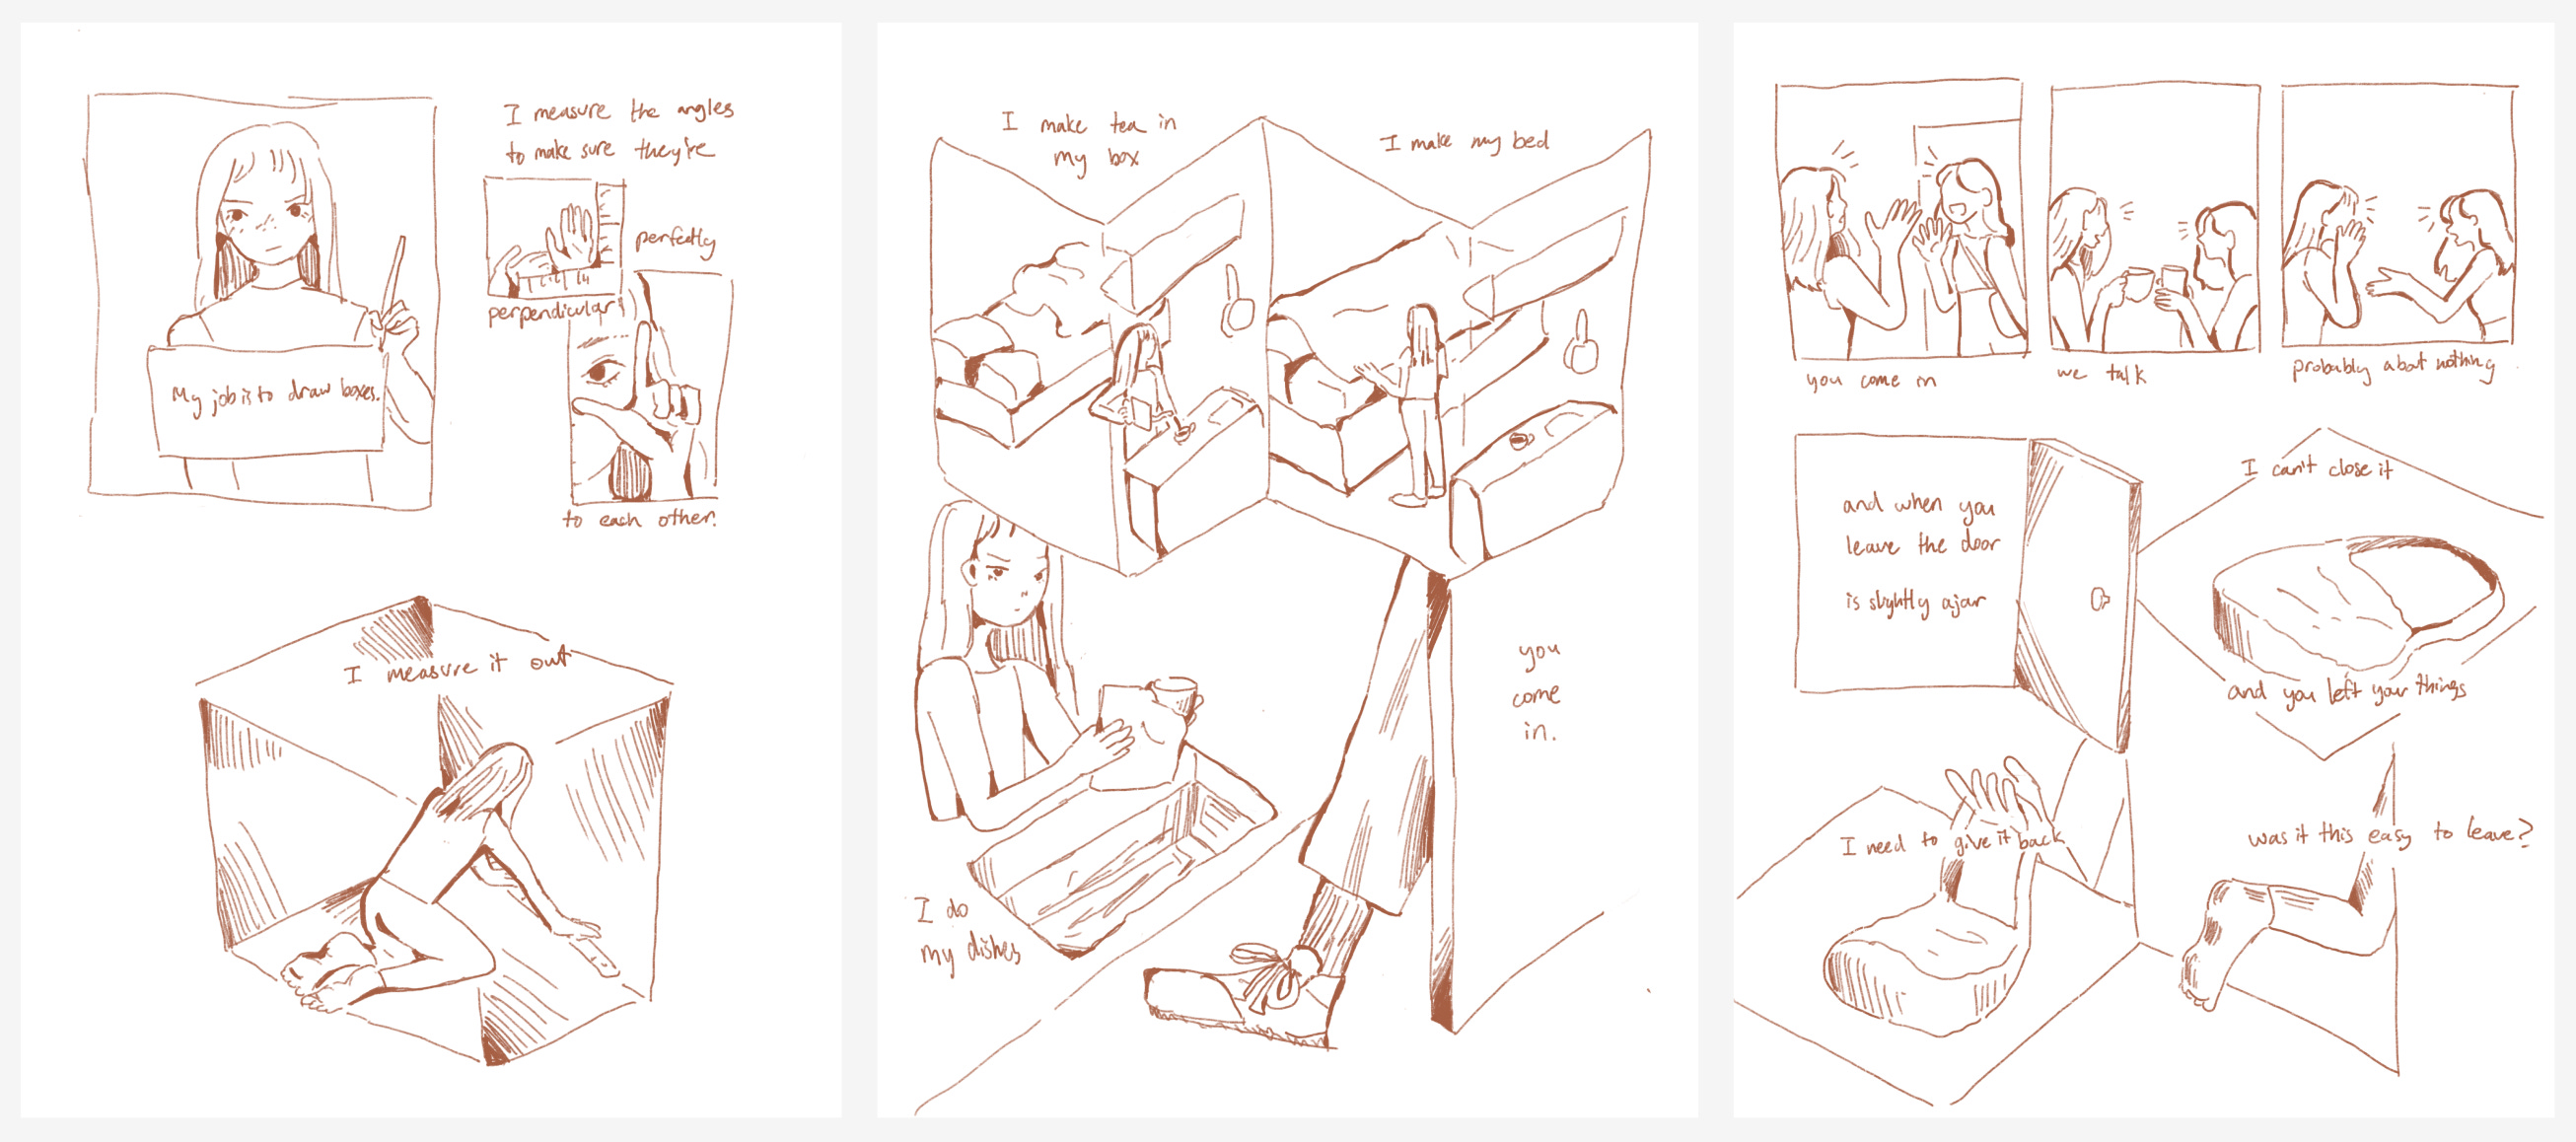 My job is to draw boxes.
I measure the angles
to make sure they're
perfectly
perpendicular
to each other.
I measure it out
I make tea in
my box
I make my bed
I do
my dishes
you
come
in.
you come in
we talk
probably about nothing
and when you
leave the door
is slightly ajar
I can't close it
and you left your things
I need to give it back
was it this easy to leave?